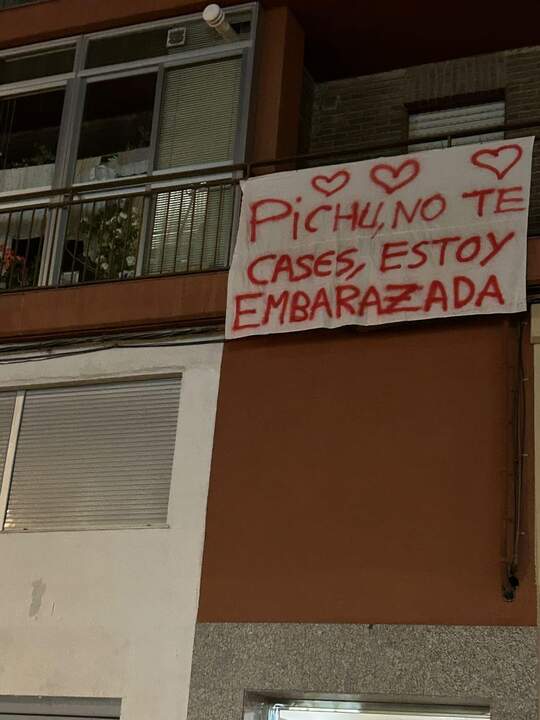 PiCHU, NO TE
CASES, ESTOY
EMBARAZADA